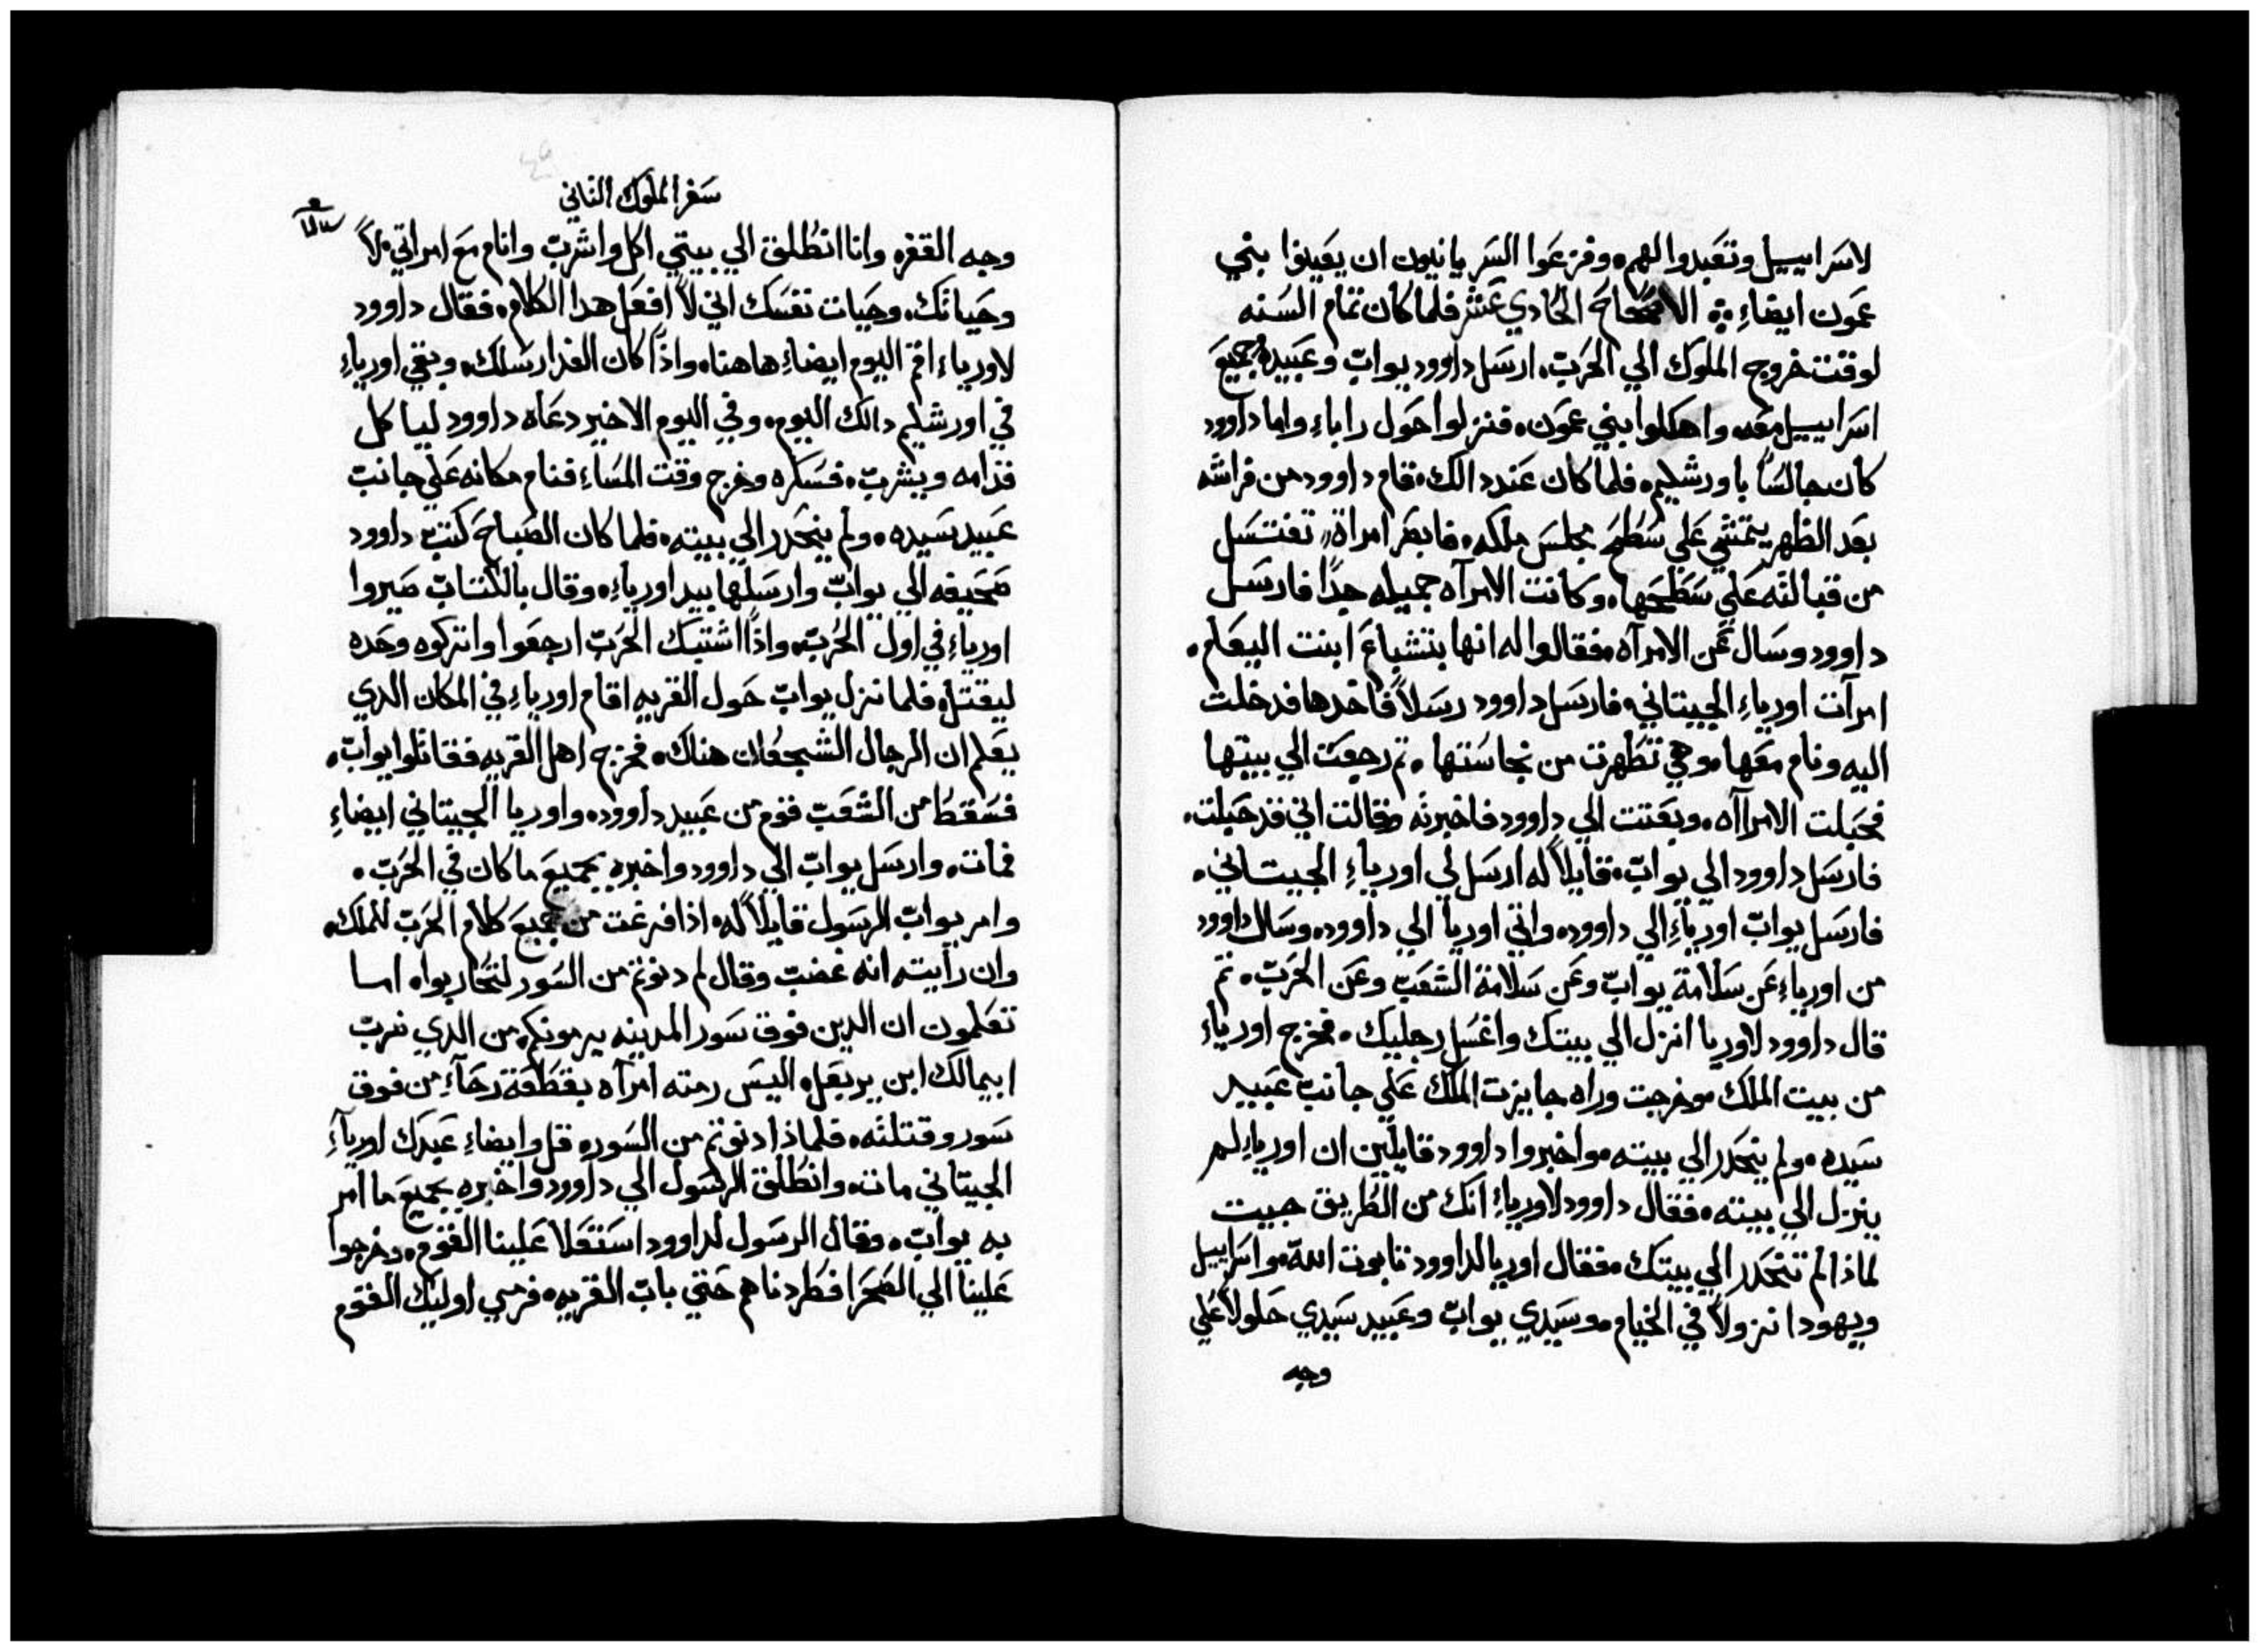 لاسراييل وتعبدوا لهم. وفزعوا السريانيون ان يعينوا بني
عمون ايضاء ❖ الاصحاح الحادي عشر فلما كان تمام السنه
لوقت خروج الملوك الي الحرب. ارسل داوود يواب وعبيده وجميع
اسراييل معه واهلكوا بني عمون. فنزلوا حول راباء واما داوود
كان جالسًا باورشليم. فلما كان عند دالك. قام داوود من فراشه
بعد الظهر يتمشي علي سطح مجلس ملكه. فابصر امراة تغتسل
من قبالته علي سطحها. وكانت الامرآه جميله جدًا فارسل
داوود وسال عن الامرآه. فقالوا له انها بتشباع ابنت اليعام.
امرآت اورياء الحيتاني. فارسل داوود رسلاً فاخدها فدخلت
اليه ونام معها. وهي تطهرت من نجاستها. تم رجعت الي بيتها
فحبلت الامراآه. وبعتت الي داوود فاخبرته وقالت اني قد حبلت.
فارسل داوود الي يواب. قايلاً له ارسل لي اورياء الحيتاني.
فارسل يواب اورياء الي داوود. واتي اوريا الي داوود. وسال داوود
من اورياء عن سلامة يواب وعن سلامة الشعب وعن الحرب. تم
قال داوود لاوريا انزل الي بيتك واغسل رجليك. فخرج اورياء
من بيت الملك. وخرجت وراه جايزت الملك علي جانب عبيد
سيده. ولم ينحدر الي بيته. واخبروا داوود قايلين ان اورياء لم
ينزل الي بيته. فقال داوود لاورياء انك من الطريق جيت
لماذا لم تنحدر الي بيتك. فقال اوريا لداوود تابوت الله. واسراييل
ويهودا نزولاً في الخيام. وسيدي يواب وعبيد سيدي حلولاً علي
وجه
سفر الملوك التاني
وجه القفره وانا انطلق الي بيتي اكل واشرب وانام مع امراتي. لا
وحياتك. وحيات نفسك اني لا افعل هدا الكلام. فقال داوود
لاورياء اقم اليوم ايضاء هاهناه واذا كان الغد ارسلك. وبقي اورياء
في اورشليم دالك اليوم. وفي اليوم الاخير دعاه داوود لياكل
قدامه ويشرب. فسكره وخرج وقت المساء فنام مكانه علي جانب
عبيد سيده. ولم ينحدر الي بيته. فلما كان الصباح كتب داوود
صحيفه الي يواب وارسلها بيد اورياء. وقال بالكتاب صيروا
اورياء في اول الحرب. واذا اشتبك الحرب ارجعوا واتركوه وحده
ليقتل. فلما نزل يواب حول القريه اقام اورياء في المكان الدي
يعلم ان الرجال الشجعان هناك. فخرج اهل القريه فقاتلوا يواب.
فسقط من الشعب قوم من عبيد داوود. واوريا الحيتاني ايضاء
فمات. وارسل يواب الي داوود واخبره بجميع ما كان في الحرب.
وامر يواب الرسول قايلاً له. اذا فرغت من جميع كلام الحرب للملك.
وان رأيته انه غضب وقال لم دنوتم من السور لتحاربوا. اما
تعلمون ان الدين فوق سور المدينه يرمونكم. من الدي ضرب
ابيمالك ابن يربعل. اليس رمته امرآه بقطعة رحآء من فوق
سور وقتلته. فلماذا دنوتم من السور. قل وايضاء عبدك اورياء
الحيتاني مات. وانطلق الرسول الي داوود واخبره بجميع ما امر
به يواب. وقال الرسول لداوود استعلا علينا القوم. وخرجوا
علينا الي الصحرا فطردناهم حتي باب القريه. فرمي اوليك القوم